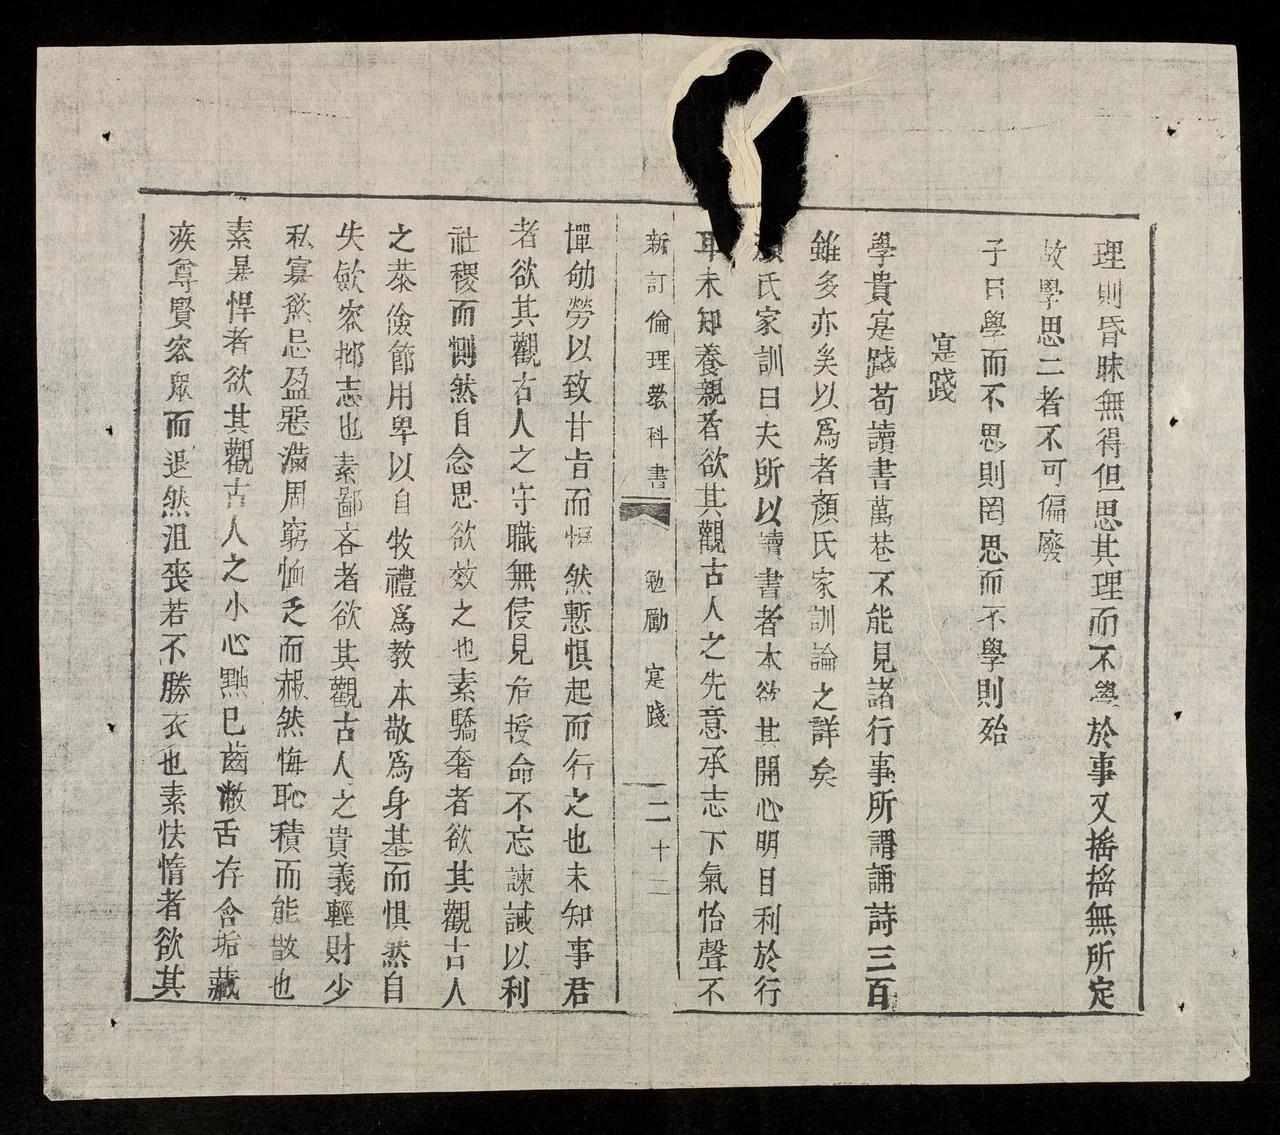 理則昏昧無得但思其理而不學於事又搖搖無所定
故學思二者不可偏廢
子曰學而不思則罔思而不學則殆
寔踐
學貴寔踐苟讀書萬卷不能見諸行事所謂誦詩三百
雖多亦奚以爲者顏氏家訓論之詳矣
顏氏家訓曰夫所以讀書者本欲其開心明目利於行
耳未知養親者欲其觀古人之先意承志下氣怡聲不
新訂倫理敎科書 勉勵 寔踐 二十二
憚劬勞以致甘旨而恒然慙惧起而行之也未知事君
者欲其觀古人之守職無侵見危授命不忘諫諴以利
社稷而惻然自念思欲效之也素驕奢者欲其觀古人
之恭儉節用卑以自牧禮爲教本敬爲身基而惧然自
失歛容抑志也素鄙吝者欲其觀古人之貴義輕財少
私寡慾忌盈惡滿周窮恤乏而赧然悔恥積而能散也
素暴悍者欲其觀古人之小心黜己齒敝舌存含垢藏
疾尊賢容衆而退然沮喪若不勝衣也素怯惰者欲其